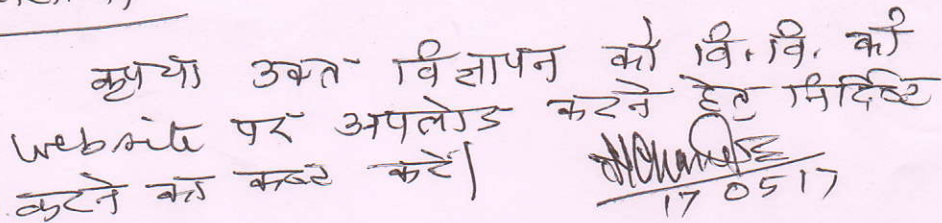 कृपया उक्त विज्ञापन को वि. वि. की
website पर अपलोड करने हेतु निर्दिष्ट
करने का कष्ट करें।
17 05 17